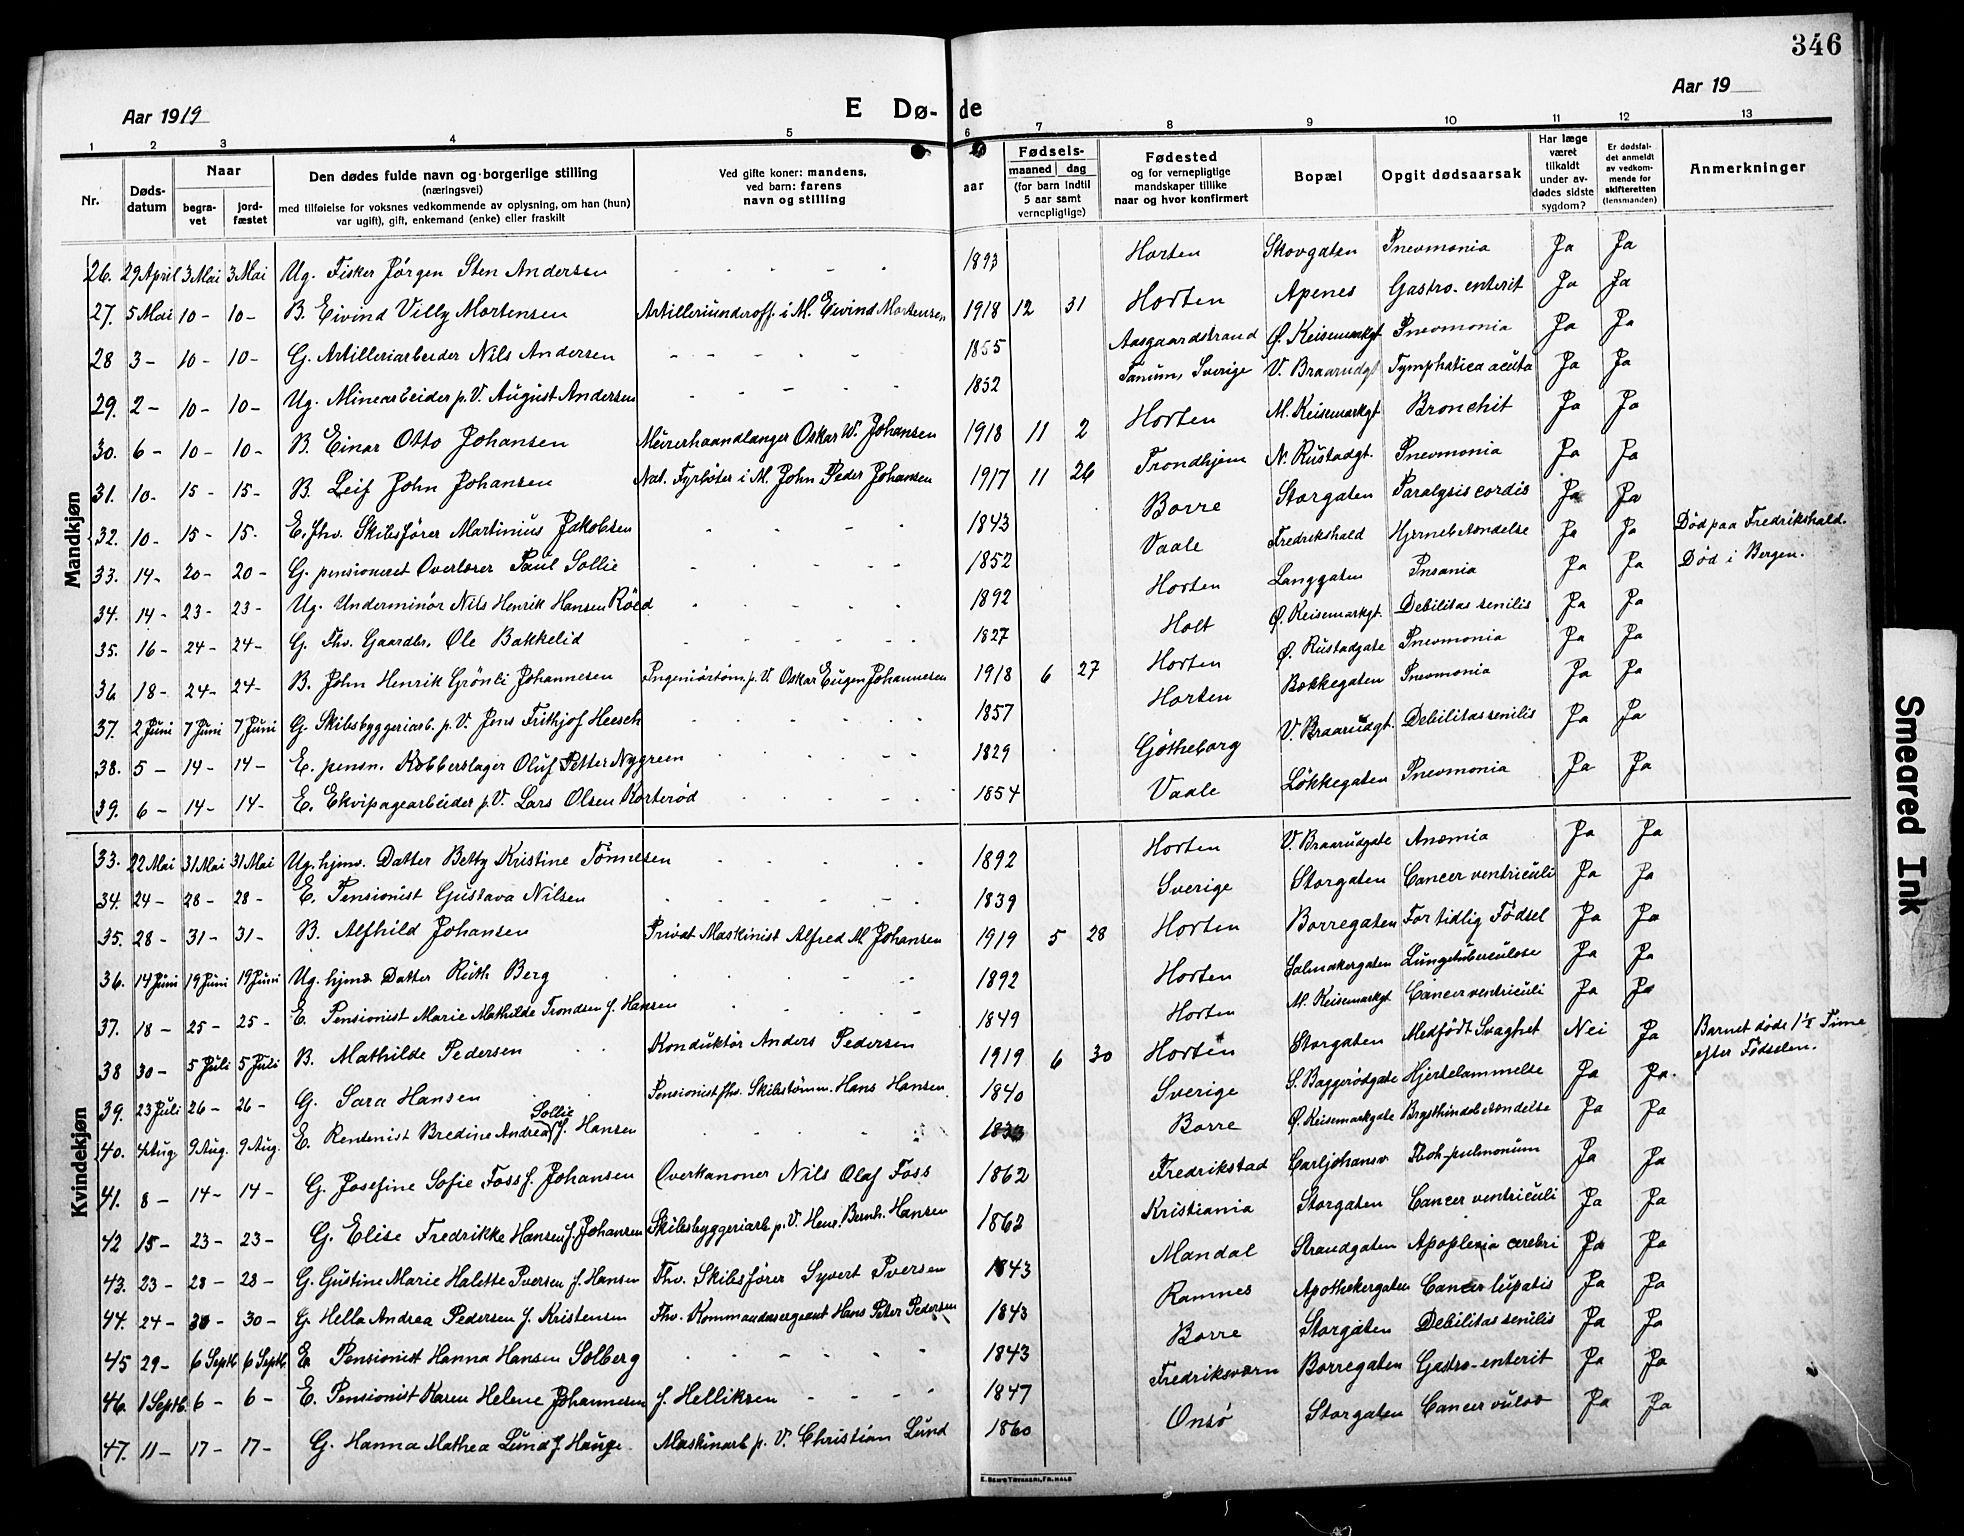 346
Aar 1919
E Dø- de
Aar 19
1 2 3 4 5 6 7 8 9 10 11 12 13
Nr.
Døds-datum
Naar
begra-vet
jord-fæstet
Den dødes fulde navn og borgerlige stilling
(næringsvei)
med tilføielse for voksnes vedkommende av oplysning, om han (hun)
var ugift), gift, enkemand (enke) eller fraskilt
Ved gifte koner: mandens,
ved barn: farens
navn og stilling
Fødsels-
aar
maaned dag
(for barn indtil
5 aar samt
vernepligtige)
Fødested
og for vernepligtige
mandskaper tillike
naar og hvor konfirmert
Bopæl
Opgit dødsaarsak
Har læge
været
tilkaldt
under av-
dødes sidste
sygdom?
Er dødsfal-
det anmeldt
av vedkom-
mende for
skifteretten
(lensmanden)
Anmerkninger
Mandkjøn
26. 29 April 3 Mai 3 Mai Ug. Fisker Jørgen Sten Andersen - - - - - 1893 Horten Skovgaten Pnevmonia Ja Ja
27. 5 Mai 10- 10- B. Eivind Villy Mortensen Artilleriunderoff. i M. Eivind Mortensen 1918 12 31 Horten Apenes Gastro-enterit Ja Ja
28 3- 10- 10- G. Artilleriarbeider Nils Andersen - - - - - 1855 Aasgaardstrand Ø. Keisemarkgt Pnevmonia Ja Ja
29. 2- 10- 10- Ug. Minearbeider p. V. August Andersen - - - - 1852 Tanum, Sverige V. Braarudgt Tymphatica acuta Ja Ja
30. 6- 10- 10- B. Einar Otto Johansen Mürerhaandlanger Oskar W. Johansen 1918 11 2 Horten M. Keisemarkgt Bronchit Ja Ja
31. 10- 15- 15- B. Leif John Johansen Nat. Fyrbøter i M. John Peder Johansen 1917 11 26 Trondhjem N. Rustadgt. Pnevmonia Ja Ja
32. 10- 15- 15. E. fhv. Skibsfører Martinius Jakobsen - - - - 1843 Borre Storgaten Paralysis cordis Ja Ja
33. 14- 20- 20- G. pensioneret Overlærer Paul Sollie - - - - 1852 Vaale Fredrikshald Hjernebetændelse Ja Ja Død paa Fredrikshald.
34. 14- 23- 23- Ug. Underminør Nils Henrik Hansen Röed - - - - 1892 Horten Langgaten Insania Ja Ja Død i Bergen.
35. 16- 24- 24- G. Fhv. Gaardbr. Ole Bakkelid - - - - - 1827 Holt Ø. Keisemarkgt. Debilitas senilis Ja Ja
36 18- 24- 24- B. John Henrik Grönli Johannesen Ingeniørtøm. p. V. Oskar Eugen Johannesen 1918 6 27 Horten Ø. Rustadgate Pnevmonia Ja Ja
37. 2 Juni 7 Juni 7 Juni G. Skibsbyggeriarb. p. V. Jens Frithjof Heesch - - - - 1857 Horten Bækkegaten Pnevmonia Ja Ja
38. 5- 14- 14- E. pensn. Kobberslager Oluf Petter Nygreen - - - - 1829 Götheborg V. Braarudgt. Debilitas senilis Ja Ja
39. 6- 14- 14- E. Ekvipagearbeider p. V. Lars Olsen Korterød - - - - 1854 Vaale Løkkegaten Pnevmonia Ja Ja
Kvindekjøn
33. 22 Mai 31 Mai 31 Mai Ug. hjmv. Datter Betty Kristine Tönnesen - - - - 1892 Horten V. Braarudgate Anæmia Ja Ja
34. 24- 28- 28- E. Pensionist Gustava Nilsen - - - - - 1839 Sverige Storgaten Cancer ventriculi Ja Ja
35. 28- 31- 31- B. Alfhild Johansen Privat Maskinist Alfred M Johansen 1919 5 28 Horten Borregaten For tidlig Födsel Ja Ja
36. 14 Juni 19 Juni 19 Juni Ug. hjmv. Datter Ruth Berg - - - - 1892 Horten Salmakergaten Lungetuberculose Ja Ja
37. 18- 25- 25- E. Pensionist Marie Mathilde Trondsen f. Hansen - - - - 1849 Horten M. Keisemarkgt Cancer ventriculi Ja Ja
38 30- 5 Juli 5 Juli B. Mathilde Pedersen Konduktør Anders Pedersen 1919 6 30 Horten Storgaten Medfödt Svaghet Nei Ja Barnet døde 1½ Time
efter Fødselen.
39. 23 Juli 26- 26- G. Sara Hansen Pensionist fhv. Skibstømm. Hans Hansen 1840 Sverige S. Baggerødgate Hjertelammelse Ja Ja.
40. 4 Aug. 9 Aug. 9 Aug. E. Rentenist Bredine Andrea Sollie f. Hansen - - - - Borre Ø. Keisemarkgate Brysthindebetændelse Ja Ja
41. 8- 14- 14- G. Josefine Sofie Foss f. Johansen Overkanoner Nils Olaf Foss 1862 Fredrikstad Carljohansv. Tboh-pulmonum Ja Ja
42 15- 23- 23- G. Elise Fredrikke Hansen f. Johansen Skibsbyggeriarb p. V. Henr. Bernh. Hansen 1862 Kristiania Storgaten Cancer ventriculi Ja Ja
43. 23- 28- 28- G. Gustine Marie Halette Iversen f. Hansen Fhv. Skibsfører Syvert Iversen 1843 Mandal Strandgaten Apoplexia cerebri Ja Ja
44. 24- 30- 30- G. Hella Andrea Pedersen f. Kristensen Fhv. Kommandersergeant Hans Peter Pedersen 1843 Ramnes Apothekergaten Cancer hepatis Ja Ja
45 29- 6 Septb. 6 Septb. E. Pensionist Hanna Hansen Solberg - - - - - 1843 Borre Storgaten Debilitas senilis Ja Ja
46. 1 Septb. 6- 6- E. Pensionist Karen Helene Johannesen f. Helliksen - - - - 1847 Fredriksværn Borregaten Gastro-enterit Ja Ja
47. 11- 17- 17- G. Hanna Mathea Lund f. Hauge Maskinarb p. V. Christian Lund 1860 Onsø Storgaten Cancer vulvæ Ja Ja
E. Sem's Trykkeri, Fr.hald
Smeared Ink